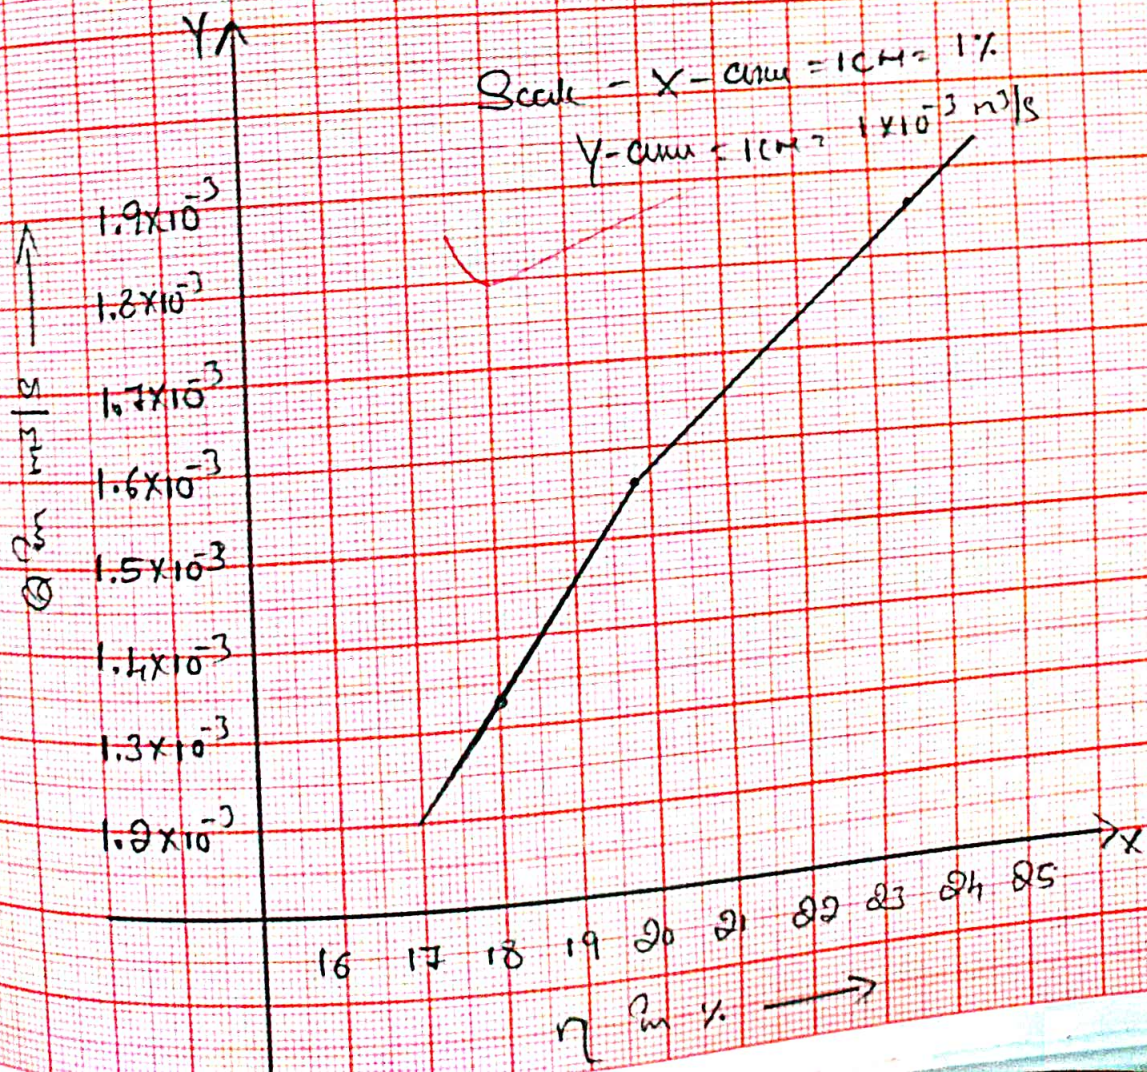 Y
Scale - X-axis = 1CM = 1%
Y-axis = 1CM = 1x10⁻³ m³/s
1.9x10⁻³
1.8x10⁻³
1.7x10⁻³
1.6x10⁻³
1.5x10⁻³
1.4x10⁻³
1.3x10⁻³
1.2x10⁻³
Q in m³/s
X
16 17 18 19 20 21 22 23 24 25
η in %